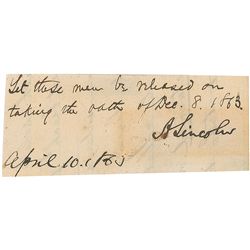 Let these men be released on
taking the oath of Dec. 8. 1863.
A Lincoln
April 10. 1865